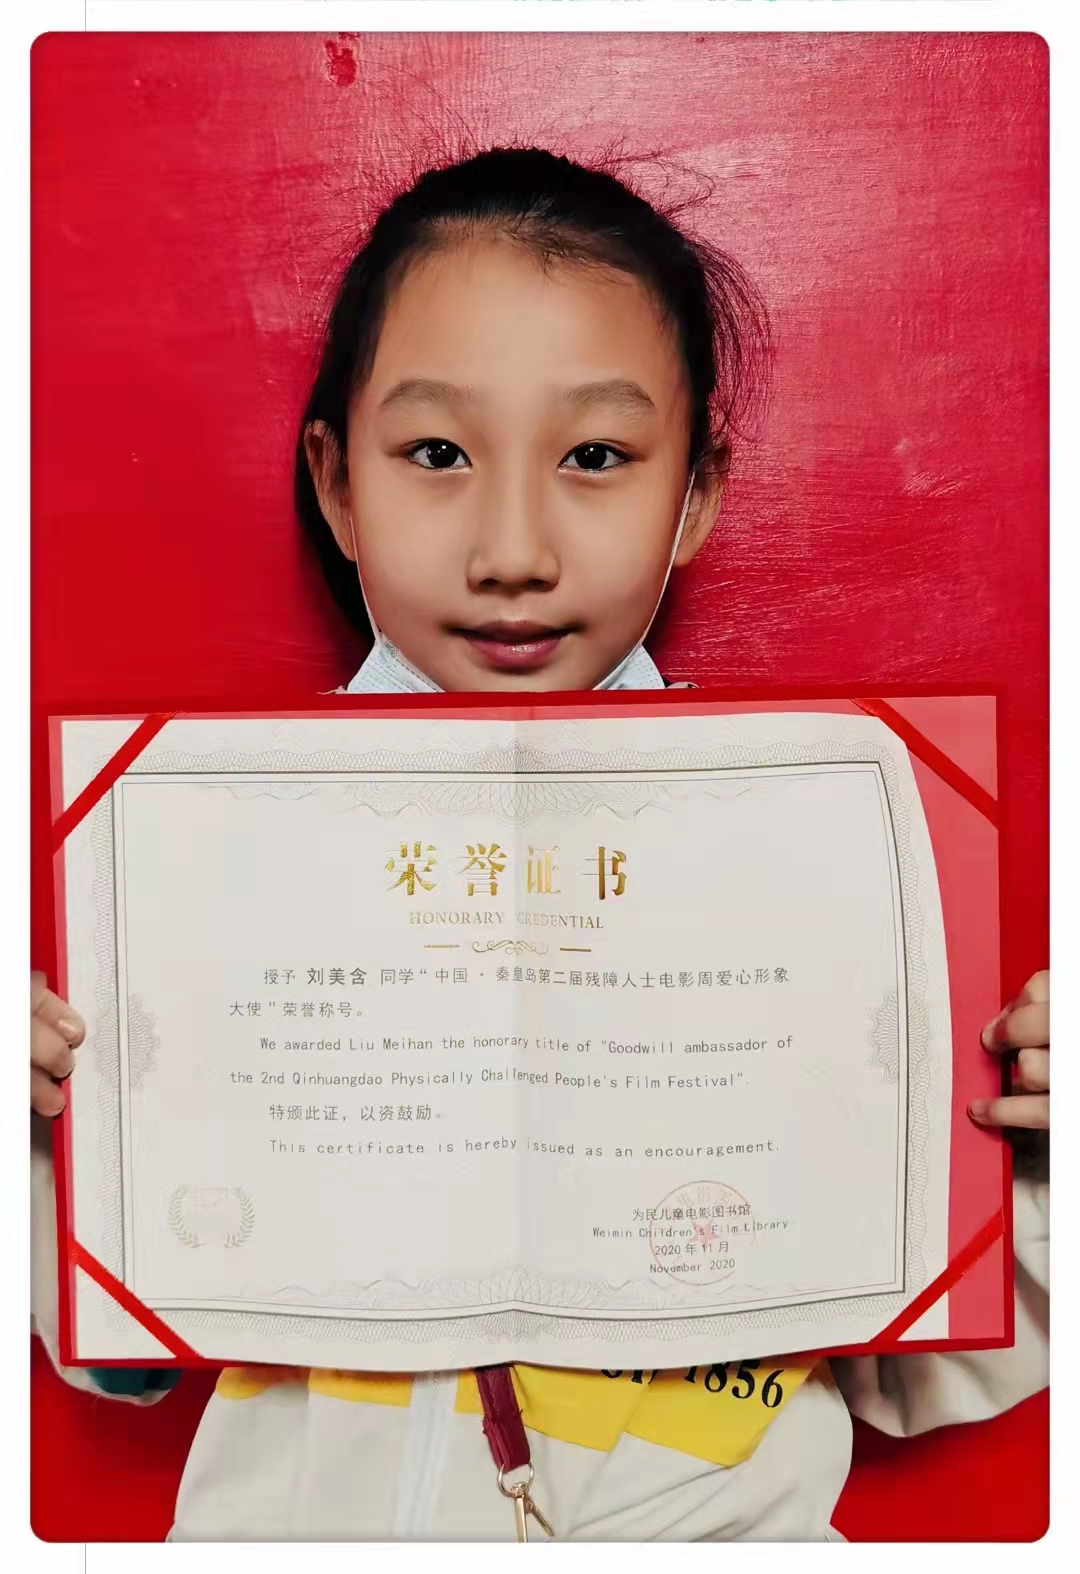 荣誉证书
HONORARY CREDENTIAL
授予 刘美含 同学“中国·秦皇岛第二届残障人士电影周爱心形象
大使”荣誉称号。
We awarded Liu Meihan the honorary title of "Goodwill ambassador of
the 2nd Qinhuangdao Physically Challenged People's Film Festival".
特颁此证，以资鼓励。
This certificate is hereby issued as an encouragement.
为民儿童电影图书馆
Weimin Children's Film Library
2020年11月
November 2020
1856